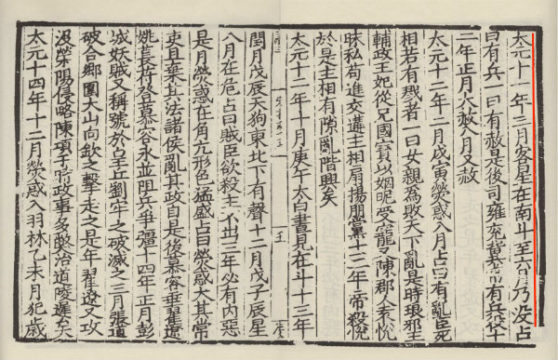 太元十一年三月客星在南斗至六月乃没占
曰有兵一曰有赦是後司雍兖冀常有兵役十
二年正月大赦八月又赦
太元十二年二月戊寅熒惑入月占曰有亂臣死
相若有戮者一曰女親為敗天下亂是時琅邪王
輔政王妃從兄國寶以姻昵受寵又陳郡人袁悦
昧私苟進交遘主相扇揚朋黨十三年帝殺悦
於是主相有隙亂階興矣
太元十二年十月庚午太白晝見在斗十三年
閏月戊辰天狗東北下有聲十二月戊子辰星
入月在危占曰賊臣欲殺主不出三年必有内惡
是月熒惑在角亢形色猛盛占曰熒惑失其常
吏且棄其法諸侯亂其政自是後慕容垂翟遼
姚萇苻登慕容永並阻兵爭彊十四年正月彭
城妖賊又稱號於皇丘劉牢之破滅之三月張道
破合鄉圍太山向欽之擊走之是年翟遼又攻
没滎陽侵略陳項于時政事多弊治道陵遲矣
太元十四年十二月熒惑入羽林乙未月犯歲